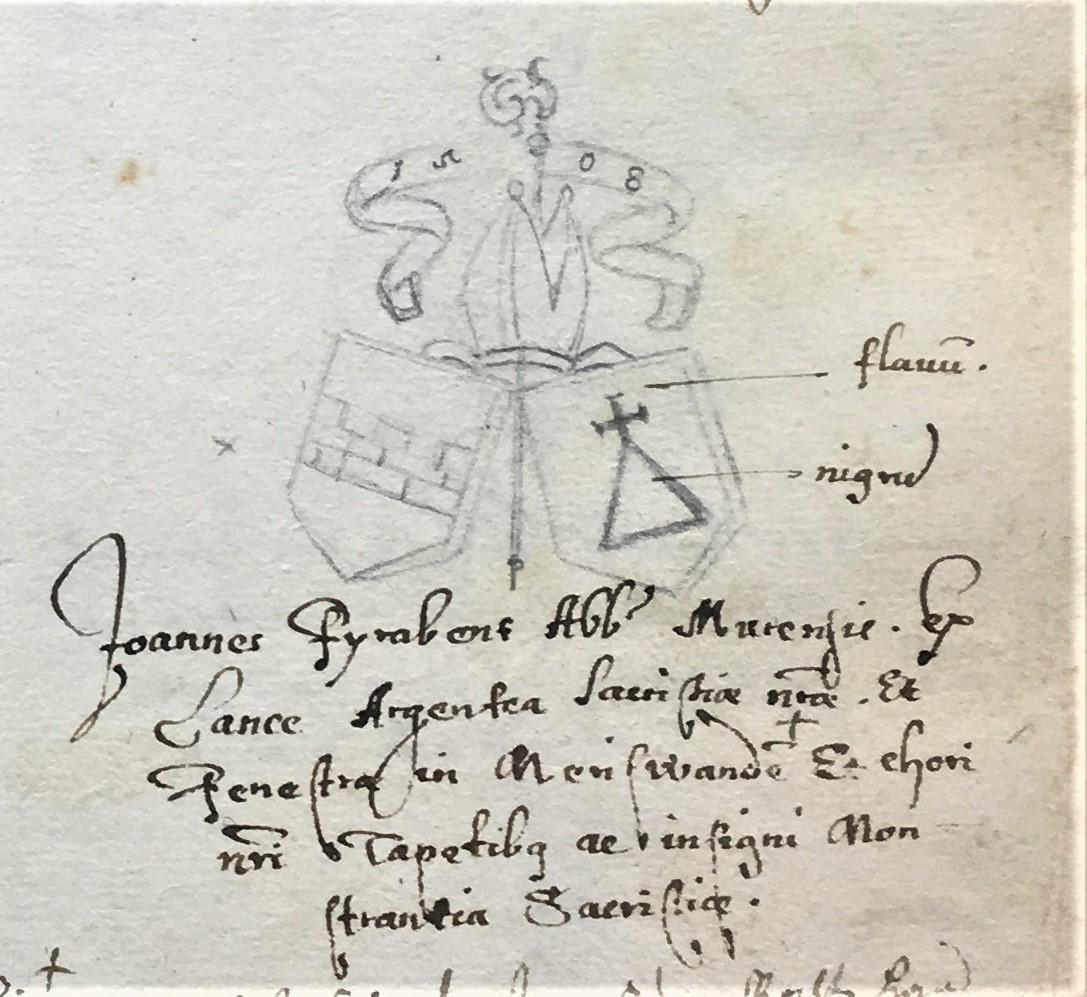 15 08
flauū.
nigrū
Joannes Fyrabent Abbˢ Murensis. Ex
Lance Argentea Sacristiæ nr̄æ. Et
Fenestra in Meriswandē + Et chori
nr̄i Tapetibq ac insigni Mon
strantia Sacristiæ.